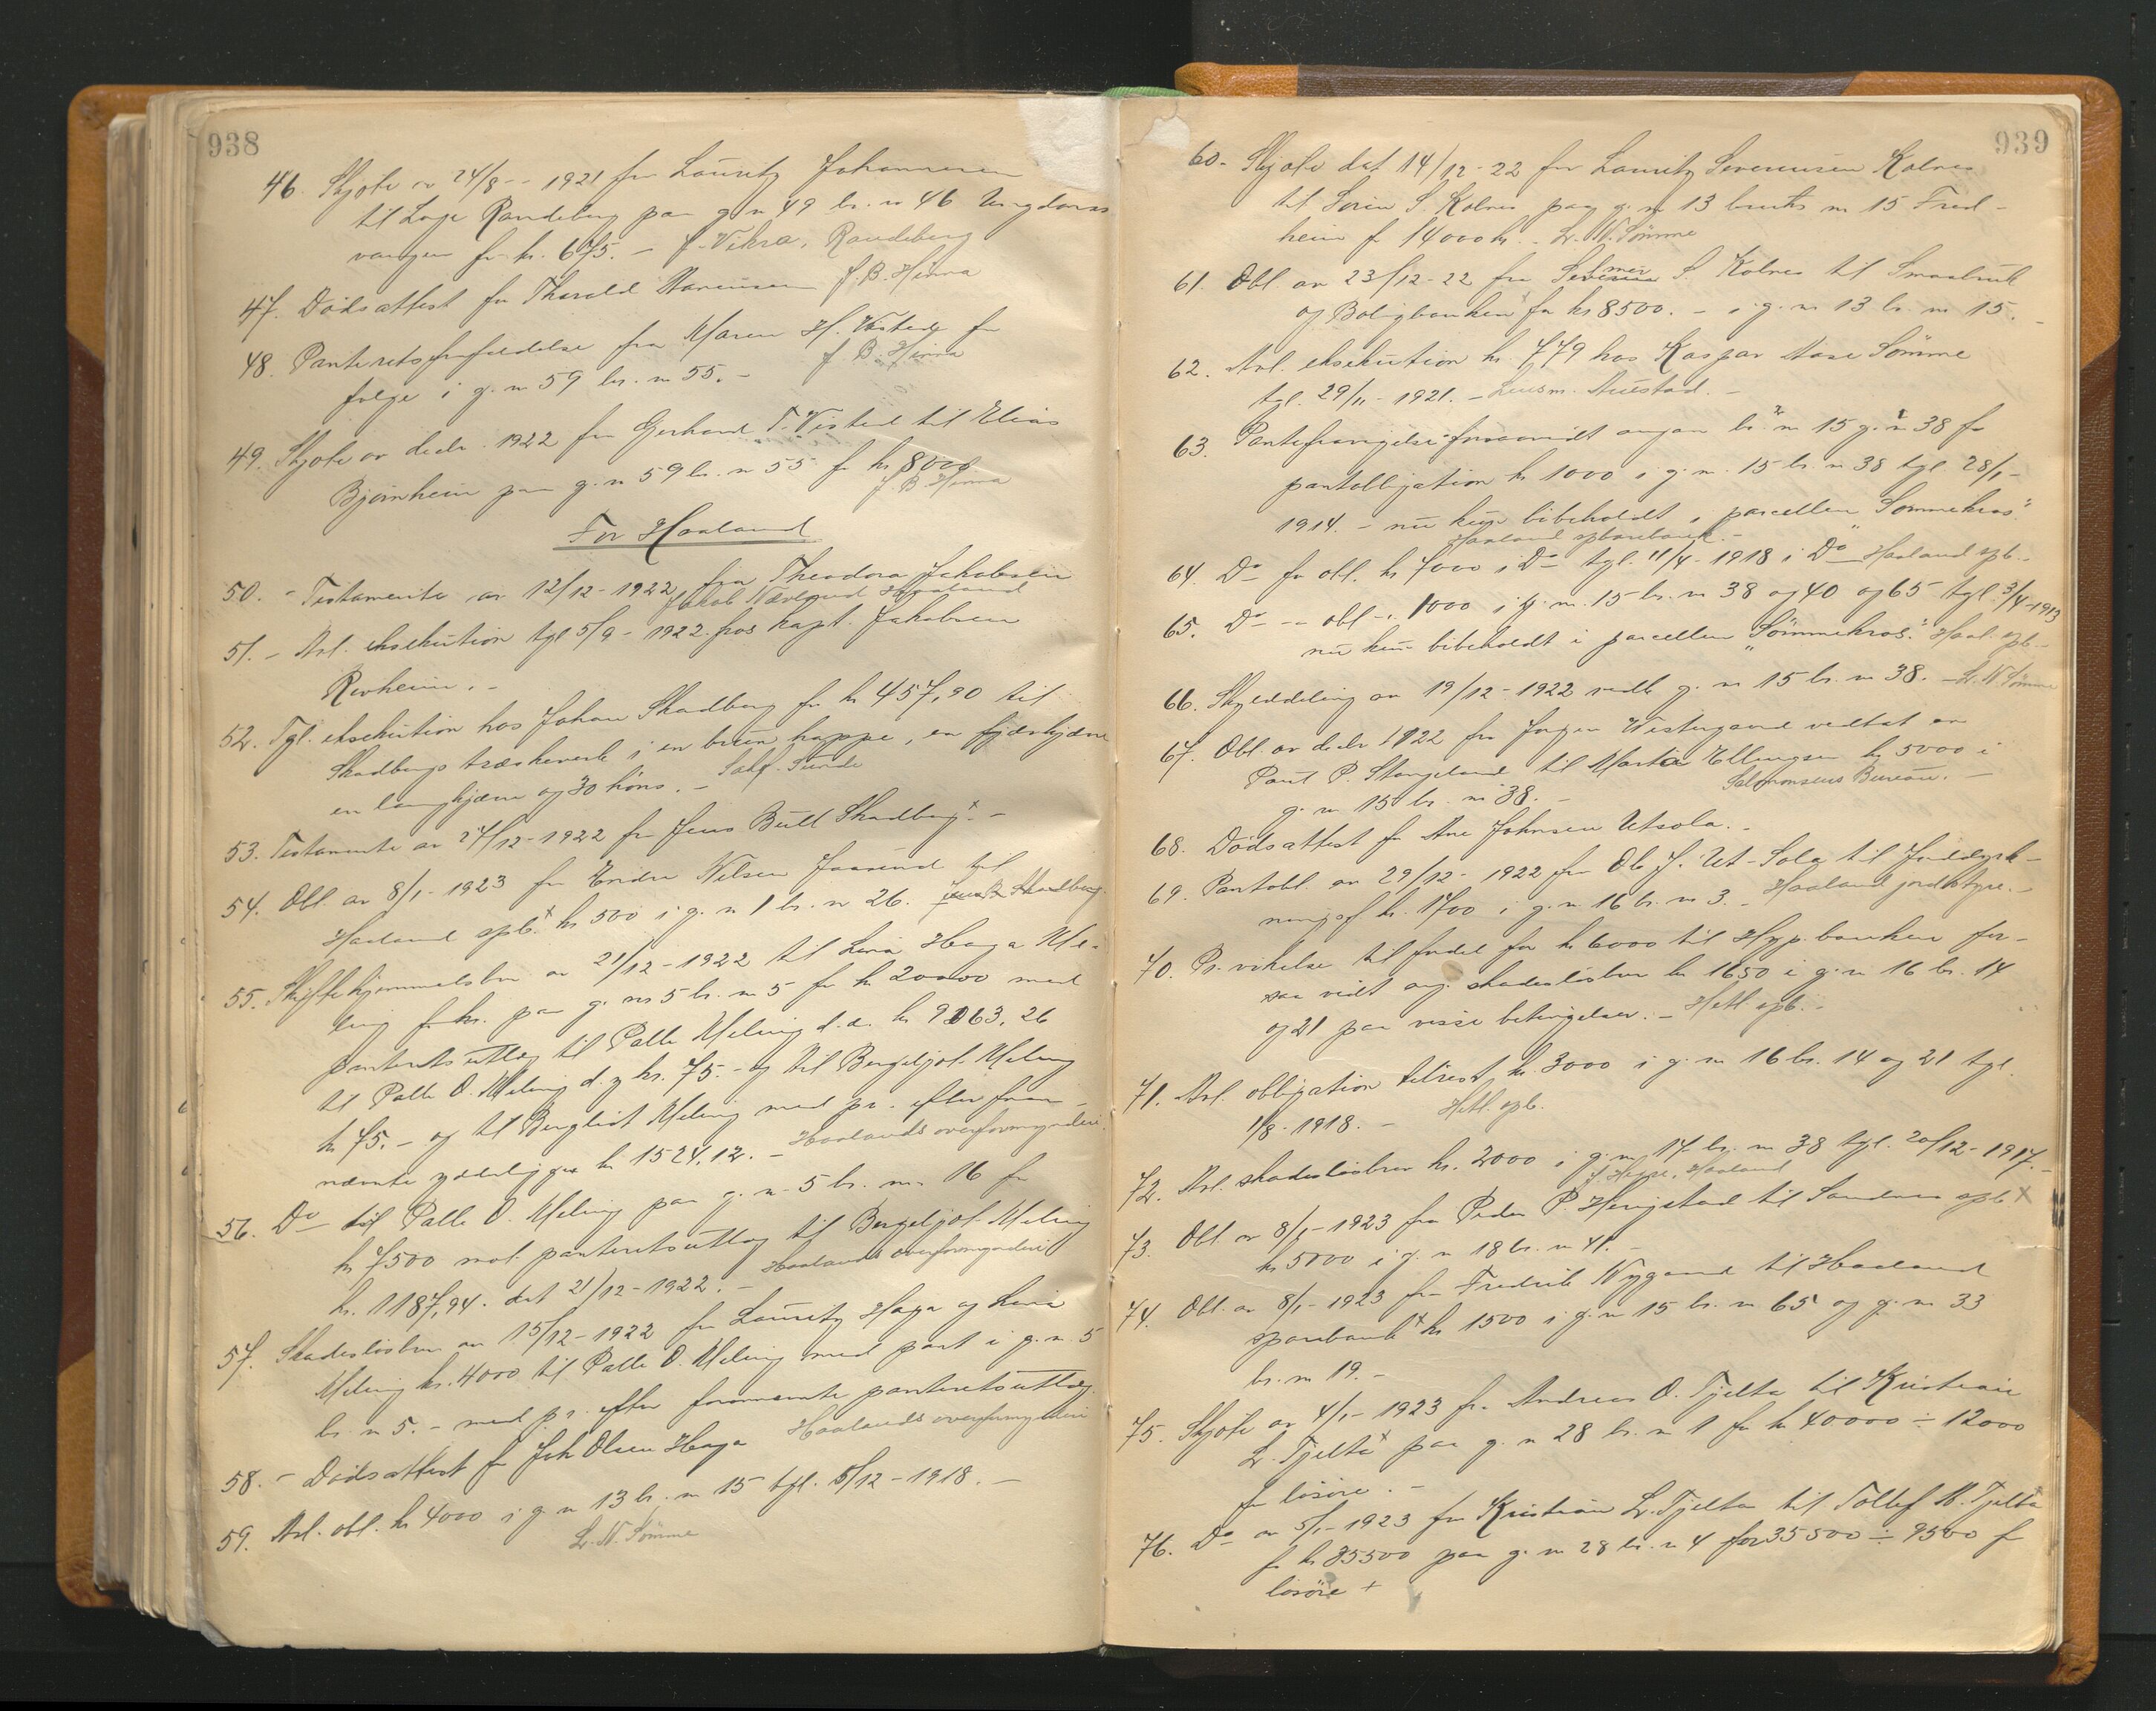 938
46. Skjøte av 24/8 - 1921 fra Lauritz Johannesen
til Lage Randeberg paa g. n 49 br. n 46 Ungdoms
vangen for kr. 675. - f. Vikra, Randeberg
47. Dødsattest for Thorald Harensen f. B. Hinna
48. Panteretsfrafaldelse fra Maren H. Visted for
følge i g. n 59 br. n 55. - f. B. Hinna
49. Skjøte av decbr. 1922 fra Gerhard T. Visted til Elias
Bjørnheim paa g. n 59 br. n 55 for kr 8000
f. B. Hinna
For Haaland
50. - Testamente av 12/12 - 1922 fra Theodora Jakobsen
Jakob Nærland Haaland
51. - Avl. eksekution tgl 5/9 - 1922 hos kapt. Jakobsen
Revheim. -
52. Tgl. eksekution hos Johan Skadberg for kr 457,90 til
Skadbergs træskeverk i en brun hoppe, en fjærkjærre
en langkjærre og 30 høns. - Sakf. Sunde
53. Testamente av 27/12 - 1922 fra Jens Bull Skadberg x. -
54. Obl. av 8/1 - 1923 fra Endre Nilsen Jaasund til
Haaland spb. x kr 500 i g. n 1 br. n 26. Jens B. Skadberg.
55. Skiftehjemmelsbrev av 21/12 - 1922 til Lava Haga Me-
ling f. kr. paa g. nr 5 br. n 5 for kr 20000 med
panteretsutlæg til Palle Meling d. æ. kr. 9063,26
til Palle O. Meling d. y kr. 75. - og til Bergeljot Meling
kr 75. - og til Bergliot Meling med pr. efter foran-
nævnte yderligere kr 1524,12. - Haalands overformynderi.
56. Do til Palle O. Meling paa g. n 5 br. n 16 for
kr 7500 mot panteretsutlæg til Bergeljot Meling
kr. 1187,94. dat 21/12 - 1922. - Haalands overformynderi
57. Skadesløsbrev av 15/12 - 1922 fra Lauritz Haga og Lava
Meling kr. 4000 til Palle O. Meling med pant i g. n. 5
br. n 5. - med pr. efter forannævnte panteretsutlæg.
58. - Dødsattest for Joh Olsen Haga Haalands overformynderi
59. Avl. obl. kr 4000 i g n 13 br. n 15 tgl. 5/12 - 1918. -
L. N. Sømme
939
60. Skjøte dat 14/12 - 22 fra Lauritz Severinsen Kolnes
til Sørine S. Kolnes paa g. n 13 bruks n 15 Fred-
heim f 14000 kr. - L. N. Sømme
61. Obl. av 23/12 - 22 fra S. Kolnes til Smaabruk
og Boligbanken for kr 8500. - i g. n 13 br. n 15. -
62. Avl. eksekution kr. 779 hos Kaspar Aase Sømme
tgl. 29/11 - 1921. - Lensm. Austad. -
63. Pantefravigelse forsaavidt angaar br. n 15 g. n 38 for
pantobligation kr 1000 i g. n. 15 br. n 38 tgl. 28/1 -
1914. - nu kun bibeholdt i parcellen "Sømmekros"
Haaland sparebank. -
64. Do for obl. kr 7000 i Do tgl. 11/4 - 1918 i Do Haaland spb. -
65. Do - - obl - " 1000 i g. n. 15 br. n 38 og 40 og 65 tgl 3/4 - 1913
nu kun bibeholdt i parcellen "Sømmekros". Haal. spb. -
66. Skylddeling av 19/12 - 1922 vedk g. n 15 br. n 38. - L. N. Sømme
67. Obl. av decbr 1922 fra Jørgen Vistergaard vedtat av
Paul P. Stangeland til Martin Ellingsen kr 5000 i
g. n 15 br. n 38. - Salomonsens Bureau. -
68. Dødsattest for Ane Johnsen Utsola. -
69. Pantobl. av 29/12 - 1922 fra Ole J. Ut-Sola til Jorddyrk-
ningsf kr. 1700 i g. n 16 br. n 3. - Haaland jordstyre. -
70. Pr. vikelse til fordel for kr 6000 til Hyp. banken for-
saa vidt ang. skadesløsbrev kr 1650 i g. n 16 br. 14
og 21 paa visse betingelser. - Hetl. spb. -
71. Avl. obligation tilrest kr. 3000 i g. n 16 br. 14 og 21 tgl.
1/8 - 1918. - Hetl. spb.
72. Avl. skadesløsbrev kr. 2000 i g. n 17 br. n 38 tgl. 20/12 - 1917. -
Haaland
73. Obl. av 8/1 - 1923 fra Peder P. Hengstad til Sandnes spb x
kr 5000 i g. n 18 br. n 41. -
74. Obl. av 8/1 - 1923 fra Fredrik Nygaard til Haaland
sparebank x kr 1500 i g. n 15 br. n 65 og g. n 33
br. n 19. -
75. Skjøte av 4/1 - 1923 fr. Andreas O. Tjelta til Kristian
L. Tjelta x paa g. n 28 br. n 1 for kr 40000 ÷ 12000
for løsøre. -
76. Do av 5/1 - 1923 fra Kristian L. Tjelta til Tollef N. Tjelta
f kr 35500 paa g. n 28 br. n 4 for 35500 ÷ 9500 f
løsøre +